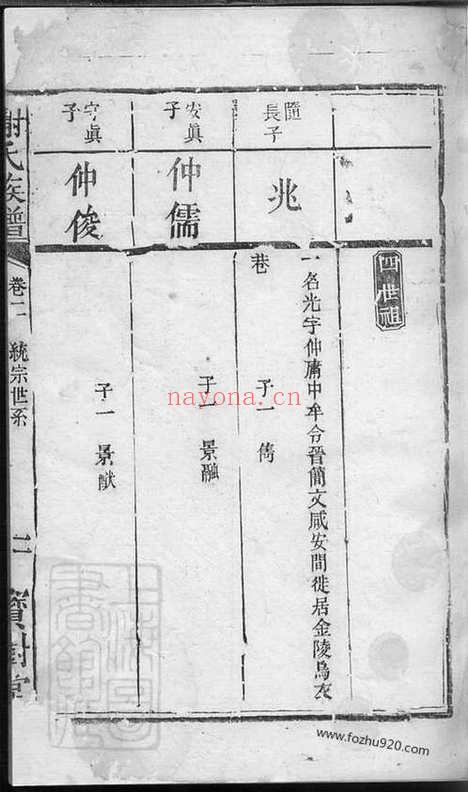 四世祖
隨長子
兆
一名光字仲庸中牟令晉簡文咸安間徙居金陵烏衣
巷　子一　雋
安眞子
仲儒
子一　景融
宇眞子
仲俊
子一　景猷
謝氏族譜
卷二　統宗世系
二
寳樹堂
nayona.cn
www.fozhu920.com